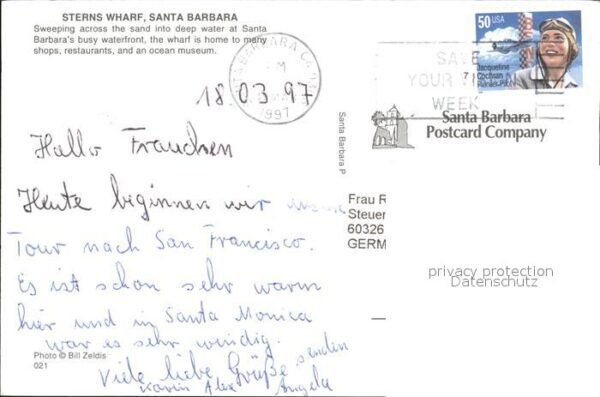 STERNS WHARF, SANTA BARBARA
Sweeping across the sand into deep water at Santa
Barbara's busy waterfront, the wharf is home to many
shops, restaurants, and an ocean museum.
SANTA BARBARA CA
PM
1997
50 USA
Jacqueline
Cochran
Pioneer Pilot
SAVE
YOUR VISION
WEEK
18 03 97
Santa Barbara
Postcard Company
Santa Barbara P
Hallo Frauchen
Heute beginnen wir unsere
Tour nach San Francisco.
Es ist schon sehr warm
hier und in Santa Monica
war es sehr windig.
Viele liebe Grüße senden
Karin Alex Angela
Photo © Bill Zeldis
021
Frau R
Steuer
60326
GERM
privacy protection
Datenschutz